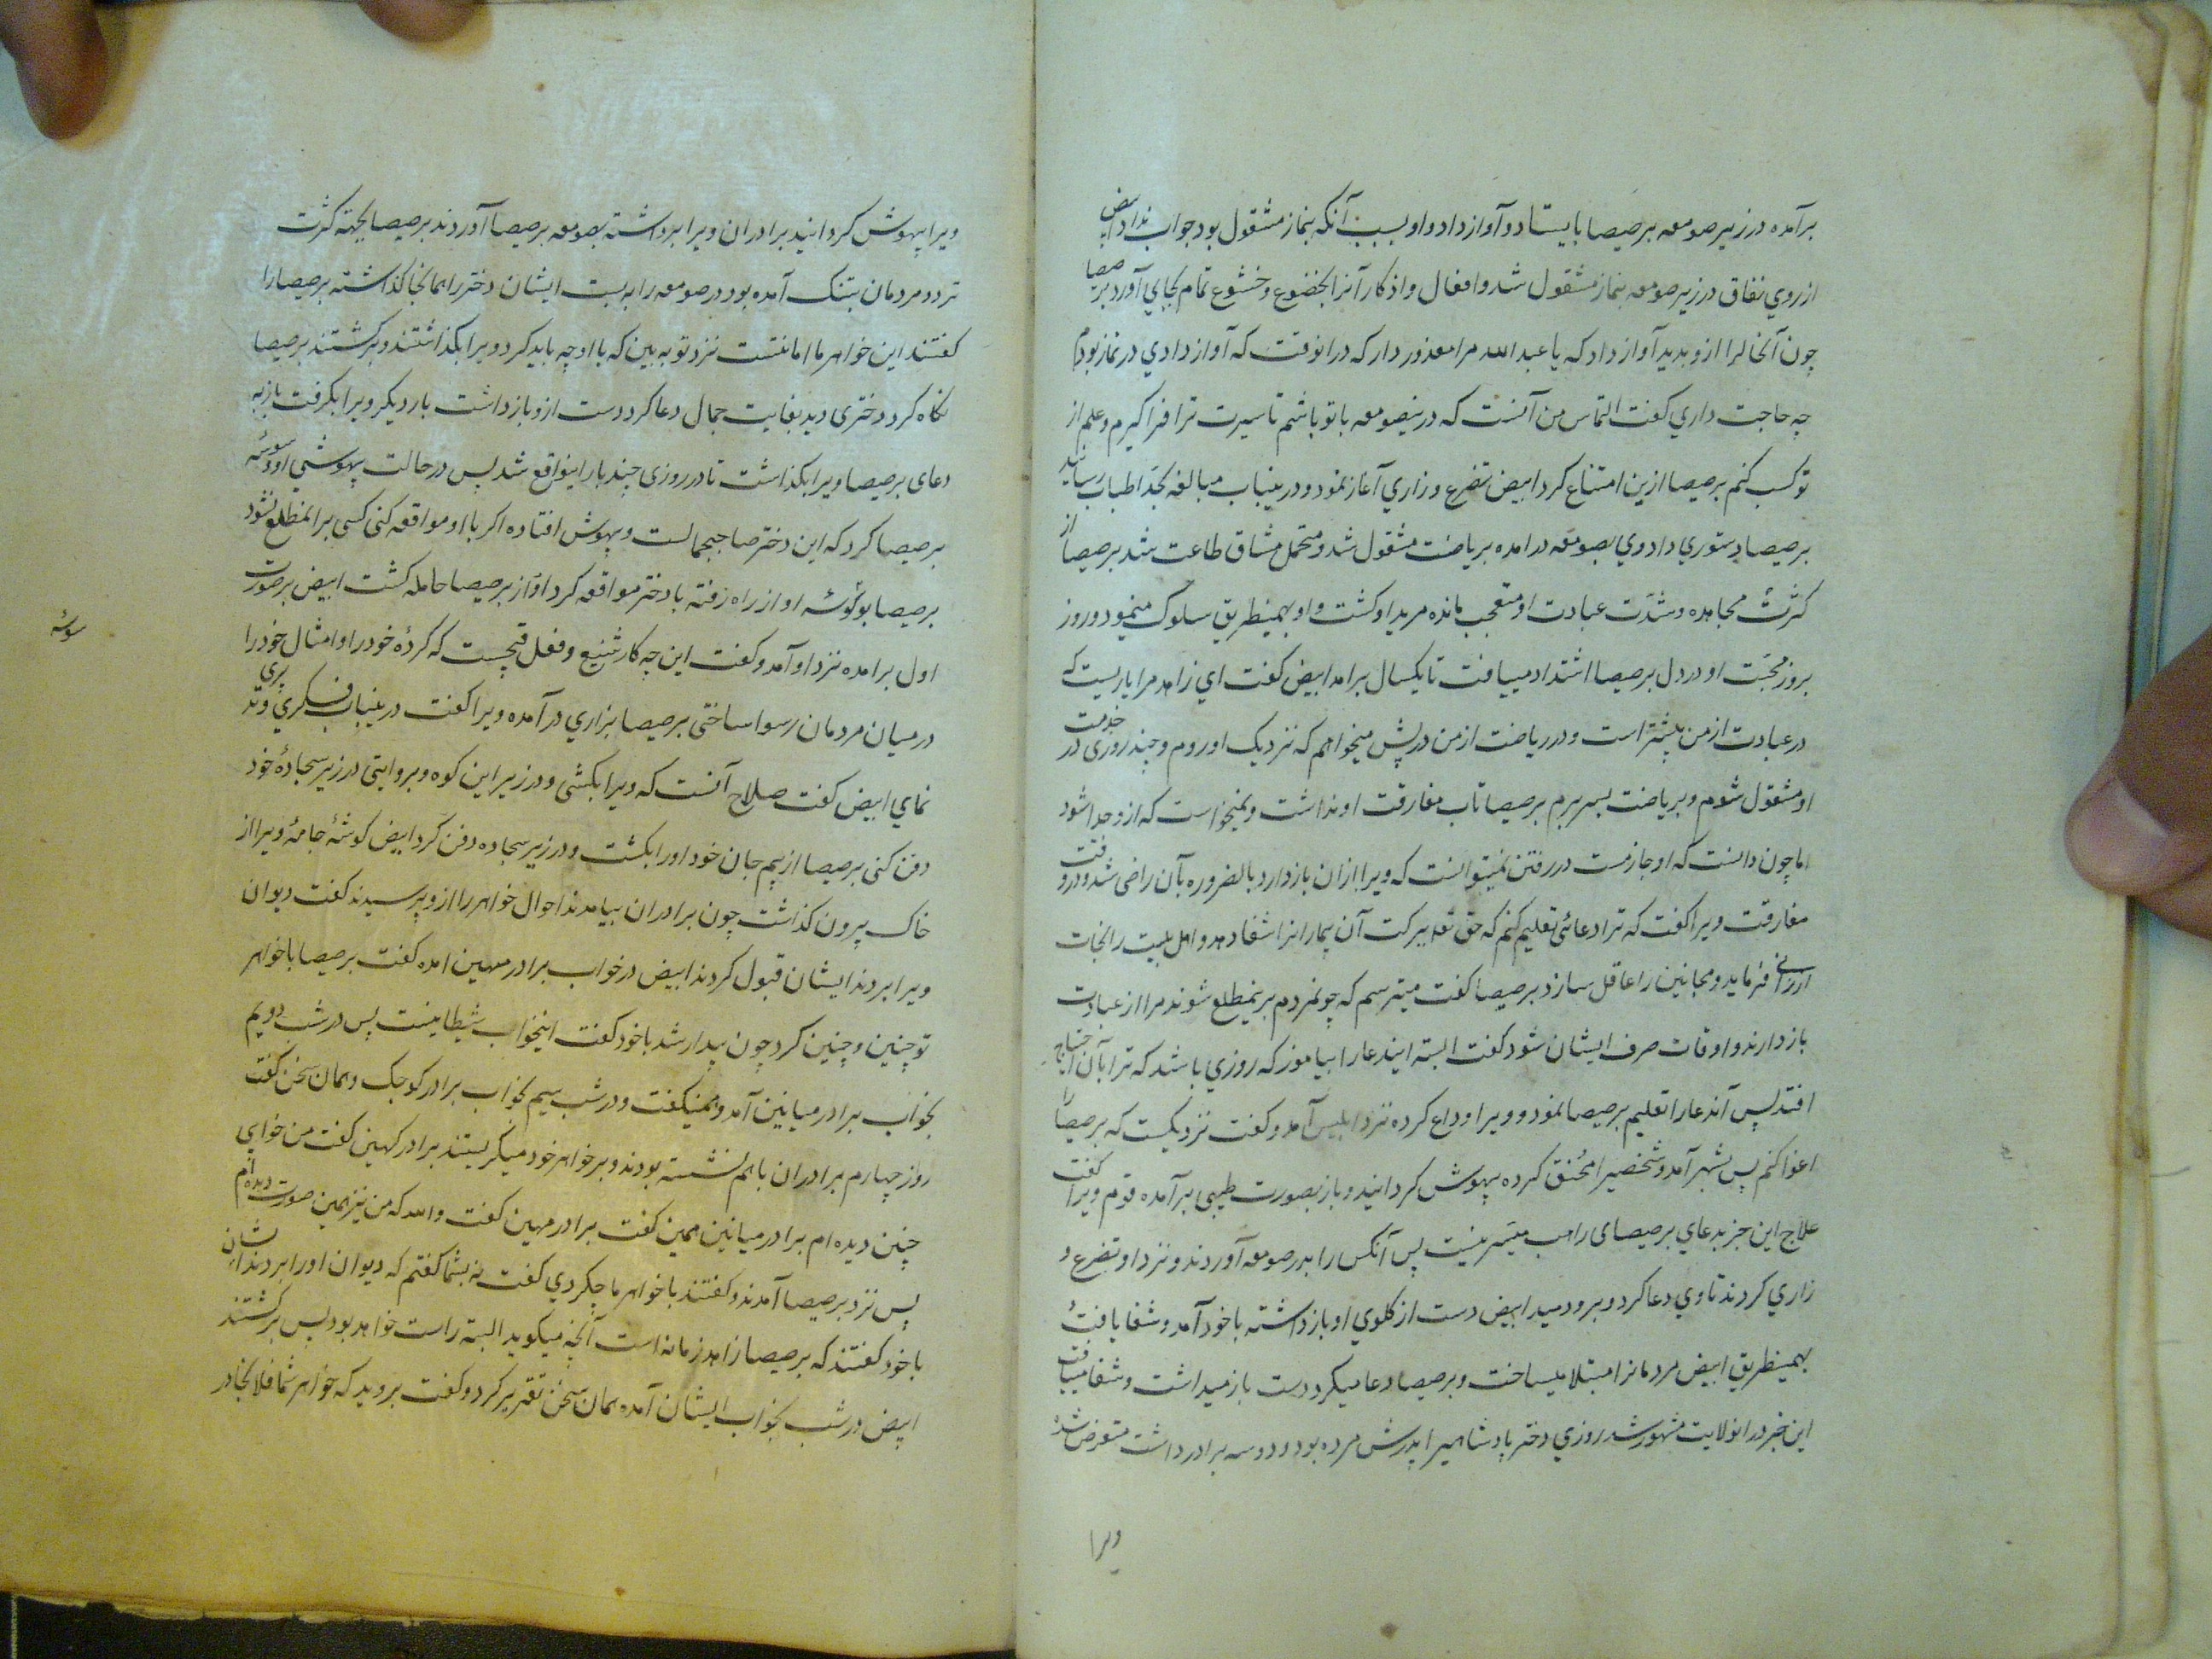 برآمده در زیر صومعه برصیصا بایستاد و آواز داد و او بسبب آنکه بنماز مشغول بود جواب نداد ابیض
از روي نفاق در زیر صومعه بنماز مشغول شد و افعال و اذکار آنرا بخضوع و خشوع تمام بجاي آورد برصیصا
چون آنحالرا ازو بدید آواز داد که یا عبد الله مرا معذور دار که درانوقت که آواز دادي در نماز بودم
چه حاجت داري کفت التماس من آنست که درینصومعه با تو باشم تا سیرت ترا فرا کیرم و علم از
تو کسب کنم برصیصا ازین امتناع کرد ابیض تضرع و زاري آغاز نمود و درینباب مبالغه بحد اطناب رسانید
برصیصا دستوري داد وي بصومعه درامده بریاضت مشغول شد و متحمل مشاق طاعت شد برصیصا از
کثرت مجاهده و شدت عبادت او متعجب مانده مرید او کشت و او بهمینطریق سلوک مینمود و روز
بروز محبت او در دل برصیصا اشتداد مییافت تا یکسال برامد ابیض کفت اي زاهد مرا یاریست که
در عبادت از من بیشتر است و در ریاضت از من درپیش میخواهم که نزدیک او روم و چند روزی در خدمت
او مشغول شوم و بریاضت بسر برم برصیصا تاب مفارقت او نداشت و نمیخواست که ازو جدا شود
اما چون دانست که او جازمست در رفتن نمیتوانست که ویرا ازان باز دارد بالضروره بآن راضی شد و در وقت
مفارقت ویرا کفت که ترا دعائی تعلیم کنم که حق تعالی ببرکت آن بیمارانرا شفا دهد و اهل بلیت را نجات
ارزانی فرماید و مجانین را عاقل سازد برصیصا کفت میترسم که چونمردم برینمطلع شوند مرا از عبادت
باز دارند و اوقات صرف ایشان شود کفت البته ایندعا را بیاموز که روزي باشد که ترا بآن احتیاج
افتد پس آندعا را تعلیم برصیصا نمود و ویرا وداع کرده نزد ابلیس آمد و کفت نزدیکست که برصیصا را
اغوا کنم پس بشهر آمد و شخصیرا مخنق کرده بیهوش کردانید و باز بصورت طبیبی برآمده قوم ویرا کفت
علاج این جز بدعاي برصیصای راهب میسر نیست پس آنکس را بدر صومعه آوردند و نزد او تضرع و
زاري کردند تا وي دعا کرد و برو دمید ابیض دست از کلوي او باز داشته با خود آمد و شفا یافت
بهمینطریق ابیض مردمانرا مبتلا میساخت و برصیصا دعا میکرد دست باز میداشت و شفا مییافت
این خبر درانولایت مشهور شد روزي دختر پادشاهیرا پدرش مرده بود و دو سه برادر داشت متعرض شد
ویرا
ویرا بیهوش کردانید برادران ویرا برداشته بصومعه برصیصا آوردند برصیصا بجهته کثرت
تردد مردمان بتنک آمده بود در صومعه را به بست ایشان دختر را همانجا کذاشته برصیصا را
کفتند این خواهر ما امانتست نزد تو به بین که با او چه باید کرد ویرا بکذاشتند و برکشتند برصیصا
نکاه کرد دختری دید بغایت جمال دعا کرد دست ازو باز داشت بار دیکر ویرا بکرفت باز به
دعای برصیصا ویرا بکذاشت تا در روزی چند بار اینواقع شد پس در حالت بیهوشی او وسوسه
برصیصا کرد که این دختر صاحبجمالست و بیهوش افتاده اکر با او مواقعه کنی کسی برانمطلع نشود
برصیصا بوسوسه او از راه رفته با دختر مواقعه کرد او از برصیصا حامله کشت ابیض برصورت
سوسه
اول برامده نزد او آمد و کفت این چه کار شنیع و فعل قبیحست که کردهٔ خود را و امثال خود را
در میان مردمان رسوا ساختی برصیصا بزاري درآمده ویرا کفت درینباب فکري و تدبیري
نماي ابیض کفت صلاح آنست که ویرا بکشی و در زیر این کوه و بروایتی در زیر سجادهٔ خود
دفن کنی برصیصا از بیم جان خود او را بکشت و در زیر سجاده دفن کرد ابیض کوشهٔ جامهٔ ویرا از
خاک بیرون کذاشت چون برادران بیامدند احوال خواهر را ازو پرسیدند کفت دیوان
ویرا بردند ایشان قبول کردند ابیض در خواب برادر مهین امده کفت برصیصا با خواهر
تو چنین و چنین کرد چون بیدار شد با خود کفت اینخواب شیطانیست پس در شب دویم
بخواب برادر میانین آمد و همینکفت و در شب سیم بخواب برادر کوچک و همان سخن کفت
روز چهارم برادران باهم نشسته بودند و بر خواهر خود میکریستند برادر کهین کفت من خوابي
چنین دیده ام برادر میانین همین کفت برادر مهین کفت والله که من نیز همین صورت دیده ام
پس نزد برصیصا آمدند و کفتند با خواهر ما چکردي کفت نه بشما کفتم که دیوان او را بردند ایشان
با خود کفتند که برصیصا زاهد زمانه است آنچه میکوید البته راست خواهد بود پس برکشتند
ابیض در شب بخواب ایشان آمده همان سخن تقریر کرد و کفت بروید که خواهر شما فلانجا در